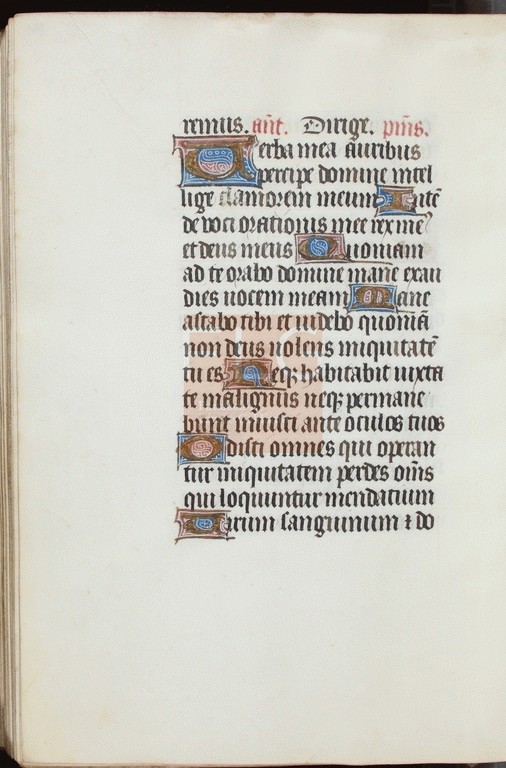 remus. añt. Dirige. pm̃s.
Verba mea auribus
percipe domine intel
lige clamorem meum Intẽ
de voci orationis mee rex me᷒
et deus meus Quoniam
ad te orabo domine mane exau
dies uocem meam Mane
astabo tibi et uidebo quoniã
non deus uolens iniquitatẽ
tu es Neqꝫ habitabit iuxta
te malignus neqꝫ permane
bunt iniusti ante oculos tuos
Odisti omnes qui operan
tur iniquitatem perdes om̃s
qui loquuntur mendatium
Uirum sanguinum ⁊ do